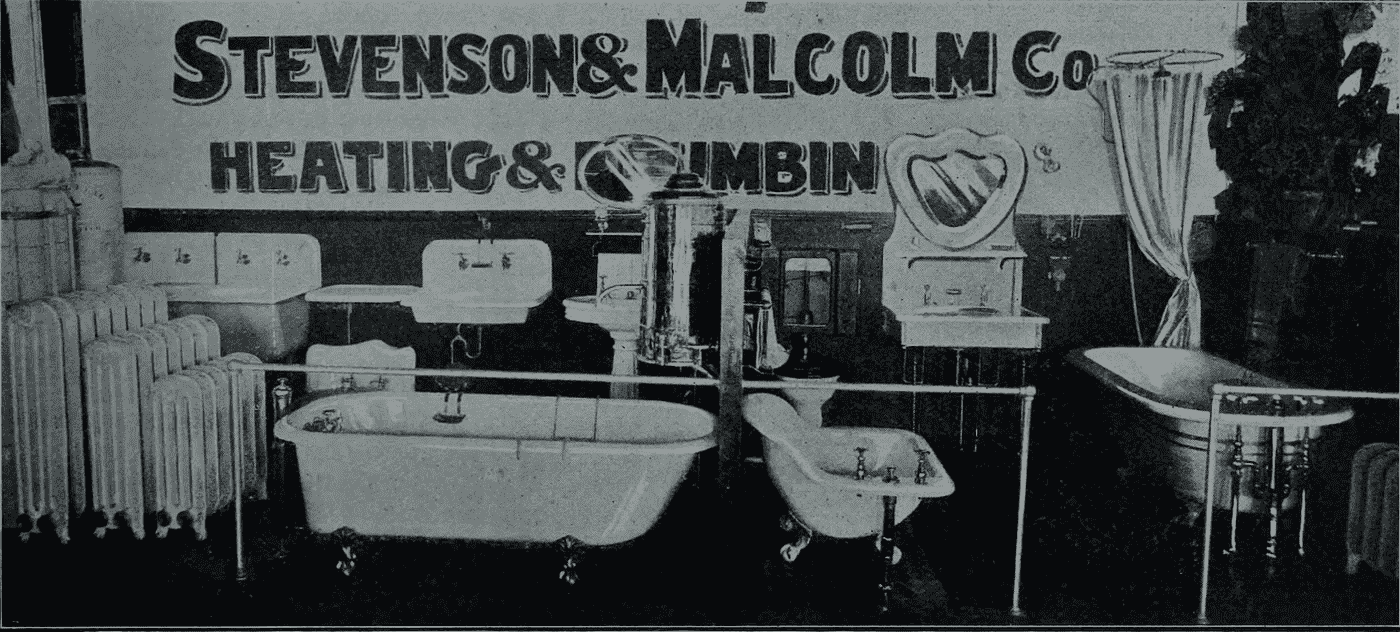 STEVENSON & MALCOLM Co
HEATING & PLUMBIN